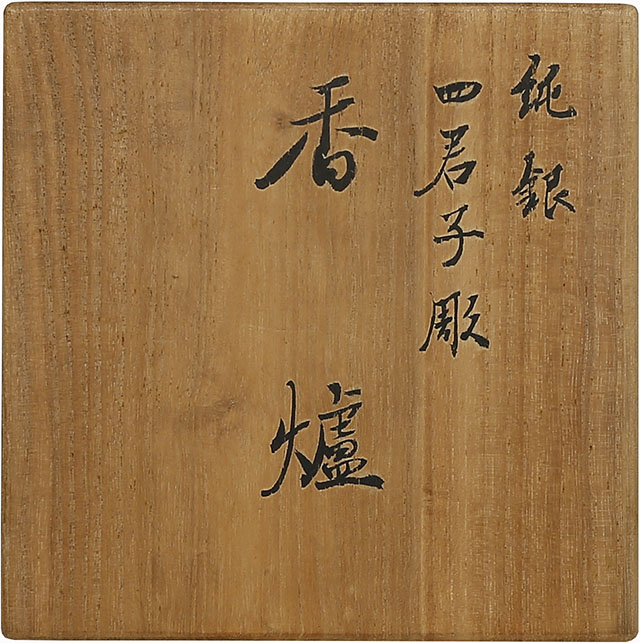 純銀
四君子彫
香爐